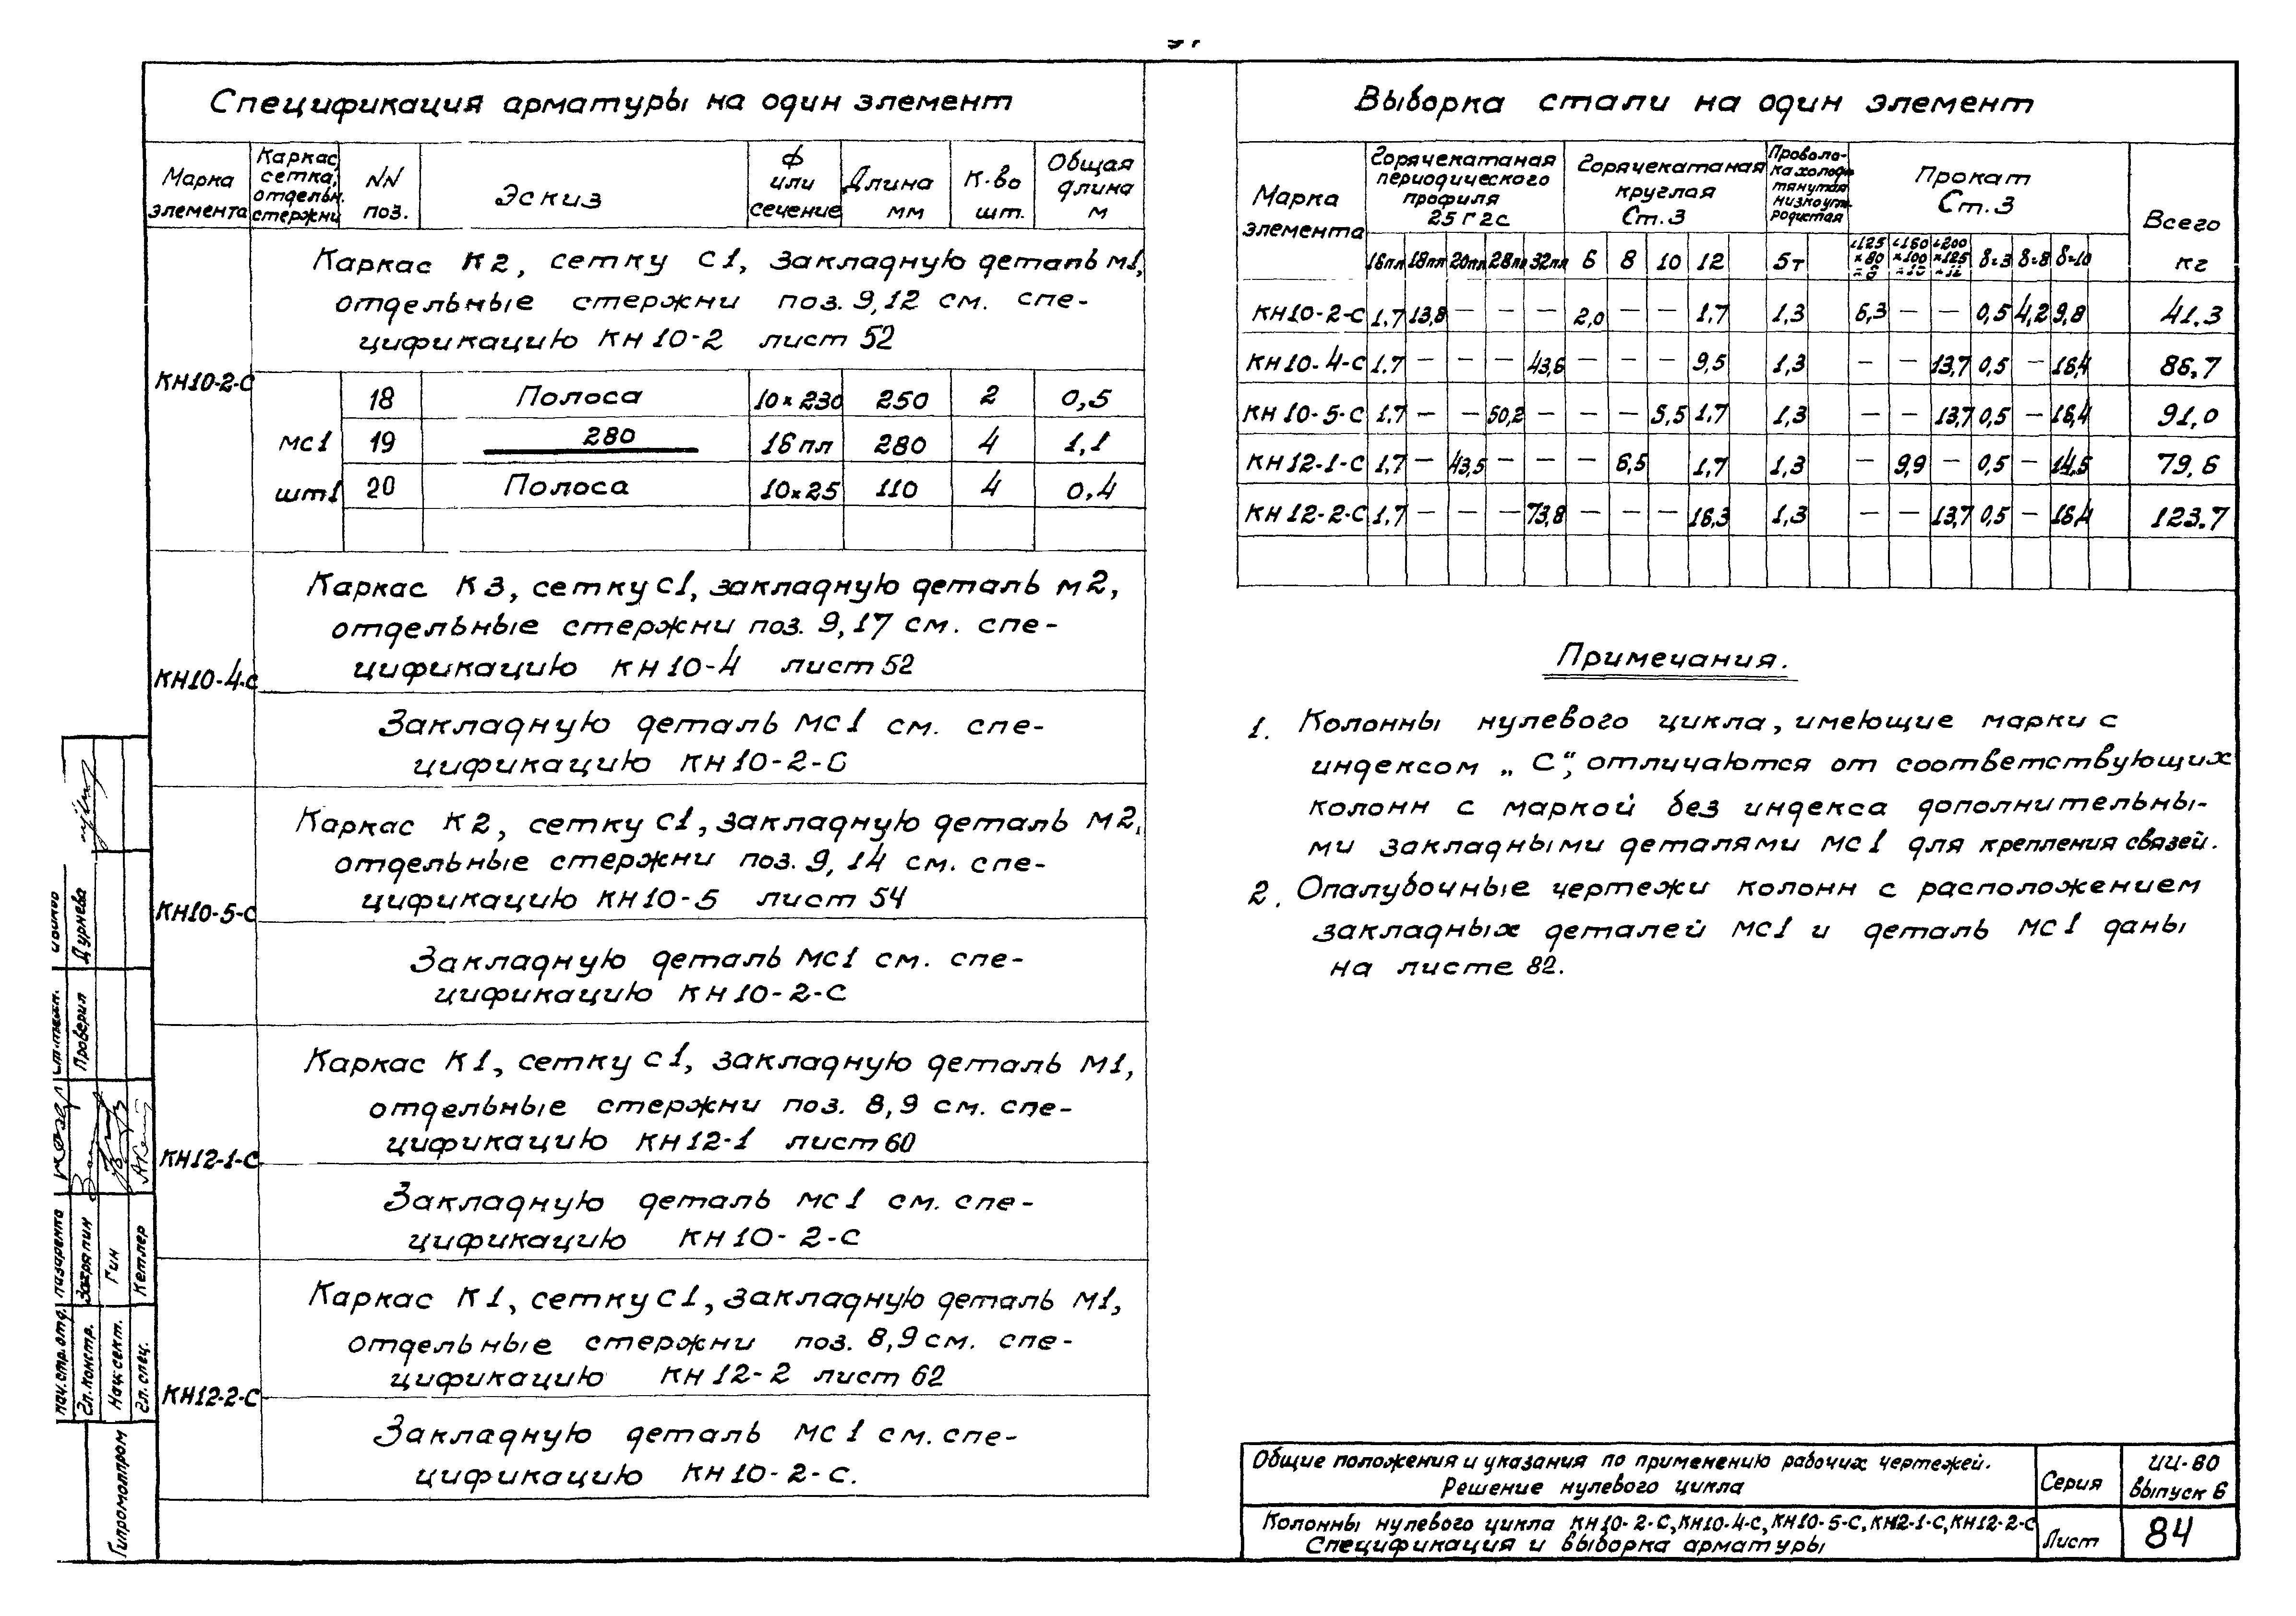 Спецификация арматуры на один элемент
Марка элемента | Каркас, сетка, отдельн. стержни | NN поз. | Эскиз | Ф или сечение | Длина мм | К-во шт. | Общая длина м
КН10-2-С
Каркас К2, сетку С1, закладную деталь М1,
отдельные стержни поз. 9,12 см. спе-
цификацию КН10-2 лист 52
МС1 шт1
18 | Полоса | 10×230 | 250 | 2 | 0,5
19 | 280 | 16пл | 280 | 4 | 1,1
20 | Полоса | 10×25 | 110 | 4 | 0,4
КН10-4-С
Каркас К3, сетку С1, закладную деталь М2,
отдельные стержни поз. 9,17 см. спе-
цификацию КН10-4 лист 52
Закладную деталь МС1 см. спе-
цификацию КН10-2-С
КН10-5-С
Каркас К2, сетку С1, закладную деталь М2,
отдельные стержни поз. 9,14 см. спе-
цификацию КН10-5 лист 54
Закладную деталь МС1 см. спе-
цификацию КН10-2-С
КН12-1-С
Каркас К1, сетку С1, закладную деталь М1,
отдельные стержни поз. 8,9 см. спе-
цификацию КН12-1 лист 60
Закладную деталь МС1 см. спе-
цификацию КН10-2-С
КН12-2-С
Каркас К1, сетку С1, закладную деталь М1,
отдельные стержни поз. 8,9 см. спе-
цификацию КН12-2 лист 62
Закладную деталь МС1 см. спе-
цификацию КН10-2-С.
Выборка стали на один элемент
Марка элемента | Горячекатаная периодического профиля 25Г2С | Горячекатаная круглая Ст.3 | Проволо-ка холодн тянутая низкоугл родистая | Прокат Ст.3 | Всего кг
16пл | 18пл | 20пл | 28пл | 32пл | 6 | 8 | 10 | 12 | 5т | ∟125×80 | ∟160×100 | ∟200×125 | δ=3 | δ=8 | δ=10
КН10-2-С | 1,7 | 13,8 | — | — | — | 2,0 | — | — | 1,7 | 1,3 | 6,3 | — | — | 0,5 | 4,2 | 9,8 | 41.3
КН10-4-С | 1.7 | — | — | — | 43,6 | — | — | — | 9,5 | 1,3 | — | — | 13,7 | 0,5 | — | 16,4 | 86.7
КН10-5-С | 1,7 | — | — | 50,2 | — | — | — | 5,5 | 1,7 | 1,3 | — | — | 13,7 | 0,5 | — | 16,4 | 91,0
КН12-1-С | 1,7 | — | 43,5 | — | — | — | 6,5 | | 1,7 | 1,3 | — | 9,9 | — | 0,5 | — | 14,5 | 79,6
КН12-2-С | 1,7 | — | — | — | 73,8 | — | — | — | 16,3 | 1,3 | — | — | 13,7 | 0,5 | — | 16,4 | 123.7
Примечания.
1. Колонны нулевого цикла, имеющие марки с
индексом „С“, отличаются от соответствующих
колонн с маркой без индекса дополнительны-
ми закладными деталями МС1 для крепления связей.
2. Опалубочные чертежи колонн с расположением
закладных деталей МС1 и деталь МС1 даны
на листе 82.
Общие положения и указания по применению рабочих чертежей.
Решение нулевого цикла
Серия
ИИ-60
Выпуск 6
Колонны нулевого цикла КН10-2-С, КН10-4-С, КН10-5-С, КН2-1-С, КН12-2-С
Спецификация и выборка арматуры
Лист
84
Дурнева
Проверил
Лазаренко
Загряпин
Гин
Кетлер
Нач.стр.отд.
Гл.констр.
Нач.сект.
Гл.спец.
Гипромолпром